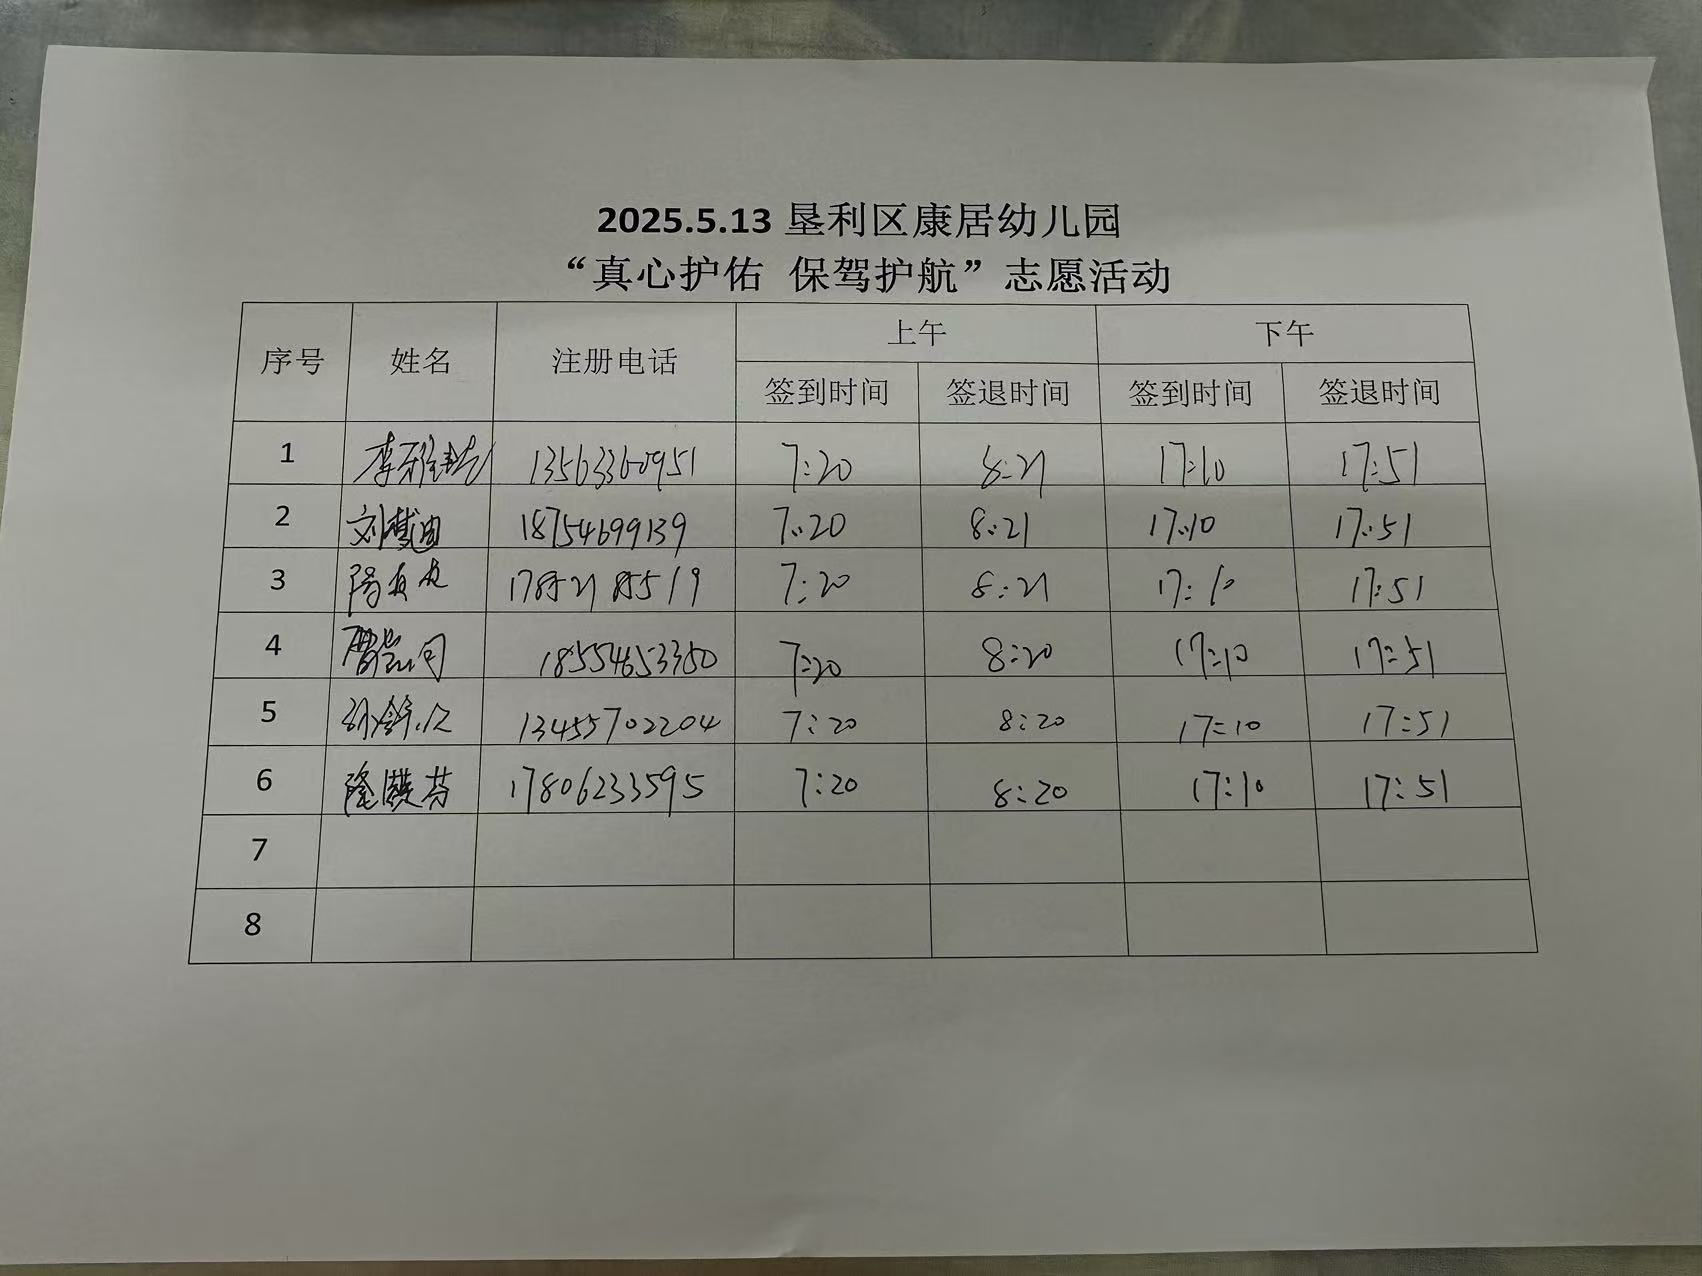 2025.5.13 垦利区康居幼儿园
“真心护佑 保驾护航”志愿活动
序号 姓名 注册电话 上午 下午
签到时间 签退时间 签到时间 签退时间
1 李 13563360951 7:20 8:21 17:10 17:51
2 刘梦迪 18754699139 7:20 8:21 17:10 17:51
3 17852185519 7:20 8:21 17:10 17:51
4 18554653350 7:20 8:20 17:10 17:51
5 13455702204 7:20 8:20 17:10 17:51
6 17806233595 7:20 8:20 17:10 17:51
7
8